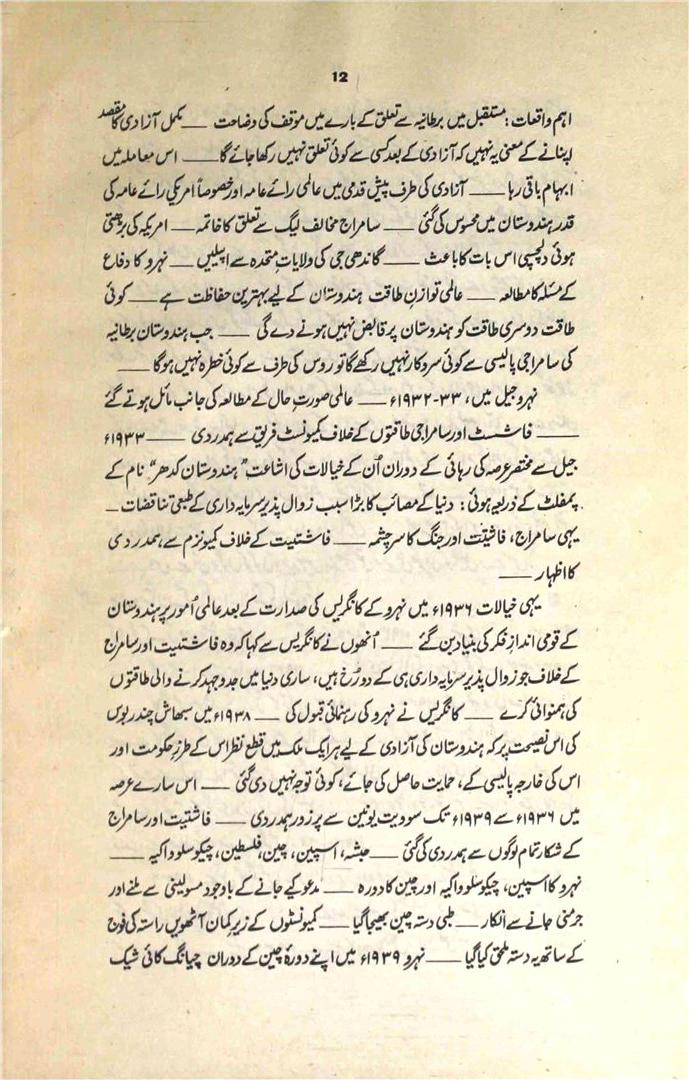 12
اہم واقعات: مستقبل میں برطانیہ سے تعلق کے بارے میں موقف کی وضاحت — مکمل آزادی کا مقصد
اپنانے کے معنی یہ نہیں کہ آزادی کے بعد کسی سے کوئی تعلق نہیں رکھا جائے گا — اس معاملہ میں
ابہام باقی رہا — آزادی کی طرف پیش قدمی میں عالمی رائے عامہ اور خصوصاً امریکی رائے عامہ کی
قدر ہندوستان میں محسوس کی گئی — سامراج مخالف لیگ سے تعلق کا خاتمہ — امریکہ کی بڑھتی
ہوئی دلچسپی اس بات کا باعث — گاندھی جی کی ولایات متحدہ سے اپیلیں — نہرو کا دفاع
کے مسئلہ کا مطالعہ — عالمی توازنِ طاقت ہندوستان کے لیے بہترین حفاظت ہے — کوئی
طاقت دوسری طاقت کو ہندوستان پر قابض نہیں ہونے دے گی — جب ہندوستان برطانیہ
کی سامراجی پالیسی سے کوئی سروکار نہیں رکھے گا تو روس کی طرف سے کوئی خطرہ نہیں ہوگا —
نہرو جیل میں، ۳۳-۱۹۳۲ء — عالمی صورتِ حال کے مطالعہ کی جانب مائل ہوتے گئے
— فاشسٹ اور سامراجی طاقتوں کے خلاف کمیونسٹ فریق سے ہمدردی — ۱۹۳۳ء
جیل سے مختصر عرصہ کی رہائی کے دوران اُن کے خیالات کی اشاعت "ہندوستان کدھر" نام کے
پمفلٹ کے ذریعہ ہوئی: دنیا کے مصائب کا بڑا سبب زوال پذیر سرمایہ داری کے طبعی تناقضات —
یہی سامراج، فاشیت اور جنگ کا سرچشمہ — فاشتیت کے خلاف کمیونزم سے ہمدردی
کا اظہار —
یہی خیالات ۱۹۳۶ء میں نہرو کے کانگریس کی صدارت کے بعد عالمی اُمور پر ہندوستان
کے قومی اندازِ فکر کی بنیاد بن گئے — اُنھوں نے کانگریس سے کہا کہ وہ فاشتیت اور سامراج
کے خلاف جو زوال پذیر سرمایہ داری ہی کے دو رُخ ہیں، ساری دنیا میں جدوجہد کرنے والی طاقتوں
کی ہمنوائی کرے — کانگریس نے نہرو کی رہنمائی قبول کی — ۱۹۳۸ء میں سبھاش چندر بوس
کی اس نصیحت پر کہ ہندوستان کی آزادی کے لیے ہر ایک ملک میں قطع نظر اس کے طرزِ حکومت اور
اس کی خارجہ پالیسی کے، حمایت حاصل کی جائے، کوئی توجہ نہیں دی گئی — اس سارے عرصہ
میں ۱۹۳۶ء سے ۱۹۳۹ء تک سوویت یونین سے پر زور ہمدردی — فاشتیت اور سامراج
کے شکار تمام لوگوں سے ہمدردی کی گئی — حبشہ، اسپین، چین، فلسطین، چیکوسلوواکیہ —
نہرو کا اسپین، چیکوسلوواکیہ اور چین کا دورہ — مدعو کیے جانے کے باوجود مسولینی سے ملنے اور
جرمنی جانے سے انکار — طبی دستہ چین بھیجا گیا — کمیونسٹوں کے زیر کمان آٹھویں راستہ کی فوج
کے ساتھ یہ دستہ ملحق کیا گیا — نہرو ۱۹۳۹ء میں اپنے دورۂ چین کے دوران چیانگ کائی شیک